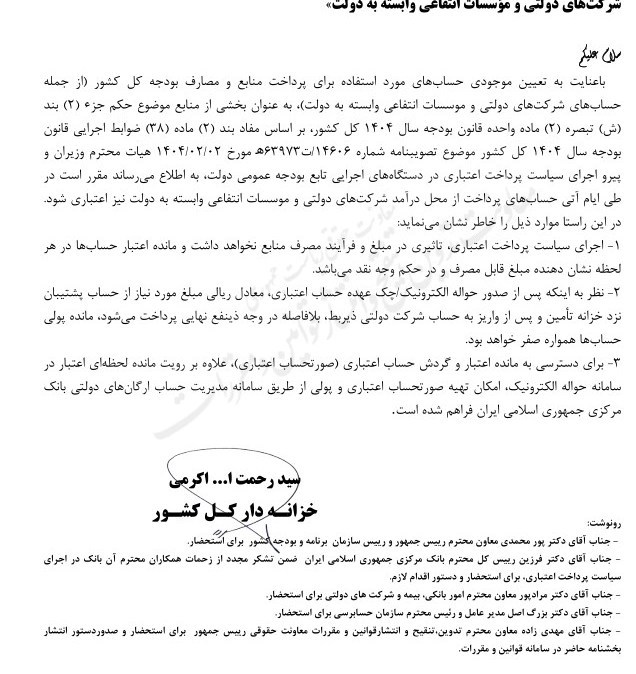 شرکت‌های دولتی و مؤسسات انتفاعی وابسته به دولت»
سلام علیکم
باعنایت به تعیین موجودی حساب‌های مورد استفاده برای پرداخت منابع و مصارف بودجه کل کشور (از جمله
حساب‌های شرکت‌های دولتی و موسسات انتفاعی وابسته به دولت)، به عنوان بخشی از منابع موضوع حکم جزء (۲) بند
(ش) تبصره (۲) ماده واحده قانون بودجه سال ۱۴۰۴ کل کشور، بر اساس مفاد بند (۲) ماده (۳۸) ضوابط اجرایی قانون
بودجه سال ۱۴۰۴ کل کشور موضوع تصویبنامه شماره ۱۴۶۰۶/ت۶۳۹۷۳هـ مورخ ۱۴۰۴/۰۲/۰۲ هیات محترم وزیران و
پیرو اجرای سیاست پرداخت اعتباری در دستگاه‌های اجرایی تابع بودجه عمومی دولت، به اطلاع می‌رساند مقرر است در
طی ایام آتی حساب‌های پرداخت از محل درآمد شرکت‌های دولتی و موسسات انتفاعی وابسته به دولت نیز اعتباری شود.
در این راستا موارد ذیل را خاطر نشان می‌نماید:
۱- اجرای سیاست پرداخت اعتباری، تاثیری در مبلغ و فرآیند مصرف منابع نخواهد داشت و مانده اعتبار حساب‌ها در هر
لحظه نشان دهنده مبلغ قابل مصرف و در حکم وجه نقد می‌باشد.
۲- نظر به اینکه پس از صدور حواله الکترونیک/چک عهده حساب اعتباری، معادل ریالی مبلغ مورد نیاز از حساب پشتیبان
نزد خزانه تأمین و پس از واریز به حساب شرکت دولتی ذیربط، بلافاصله در وجه ذینفع نهایی پرداخت می‌شود، مانده پولی
حساب‌ها همواره صفر خواهد بود.
۳- برای دسترسی به مانده اعتبار و گردش حساب اعتباری (صورتحساب اعتباری)، علاوه بر رویت مانده لحظه‌ای اعتبار در
سامانه حواله الکترونیک، امکان تهیه صورتحساب اعتباری و پولی از طریق سامانه مدیریت حساب ارگان‌های دولتی بانک
مرکزی جمهوری اسلامی ایران فراهم شده است.
سید رحمت ا... اکرمی
خزانه دار کل کشور
رونوشت:
- جناب آقای دکتر پور محمدی معاون محترم رییس جمهور و رییس سازمان برنامه و بودجه کشور برای استحضار.
- جناب آقای دکتر فرزین رییس کل محترم بانک مرکزی جمهوری اسلامی ایران ضمن تشکر مجدد از زحمات همکاران محترم آن بانک در اجرای
سیاست پرداخت اعتباری، برای استحضار و دستور اقدام لازم.
- جناب آقای دکتر مرادپور معاون محترم امور بانکی، بیمه و شرکت های دولتی برای استحضار.
- جناب آقای دکتر بزرگ اصل مدیر عامل و رئیس محترم سازمان حسابرسی برای استحضار.
- جناب آقای مهدی زاده معاون محترم تدوین،تنقیح و انتشارقوانین و مقررات معاونت حقوقی رییس جمهور برای استحضار و صدوردستور انتشار
بخشنامه حاضر در سامانه قوانین و مقررات.